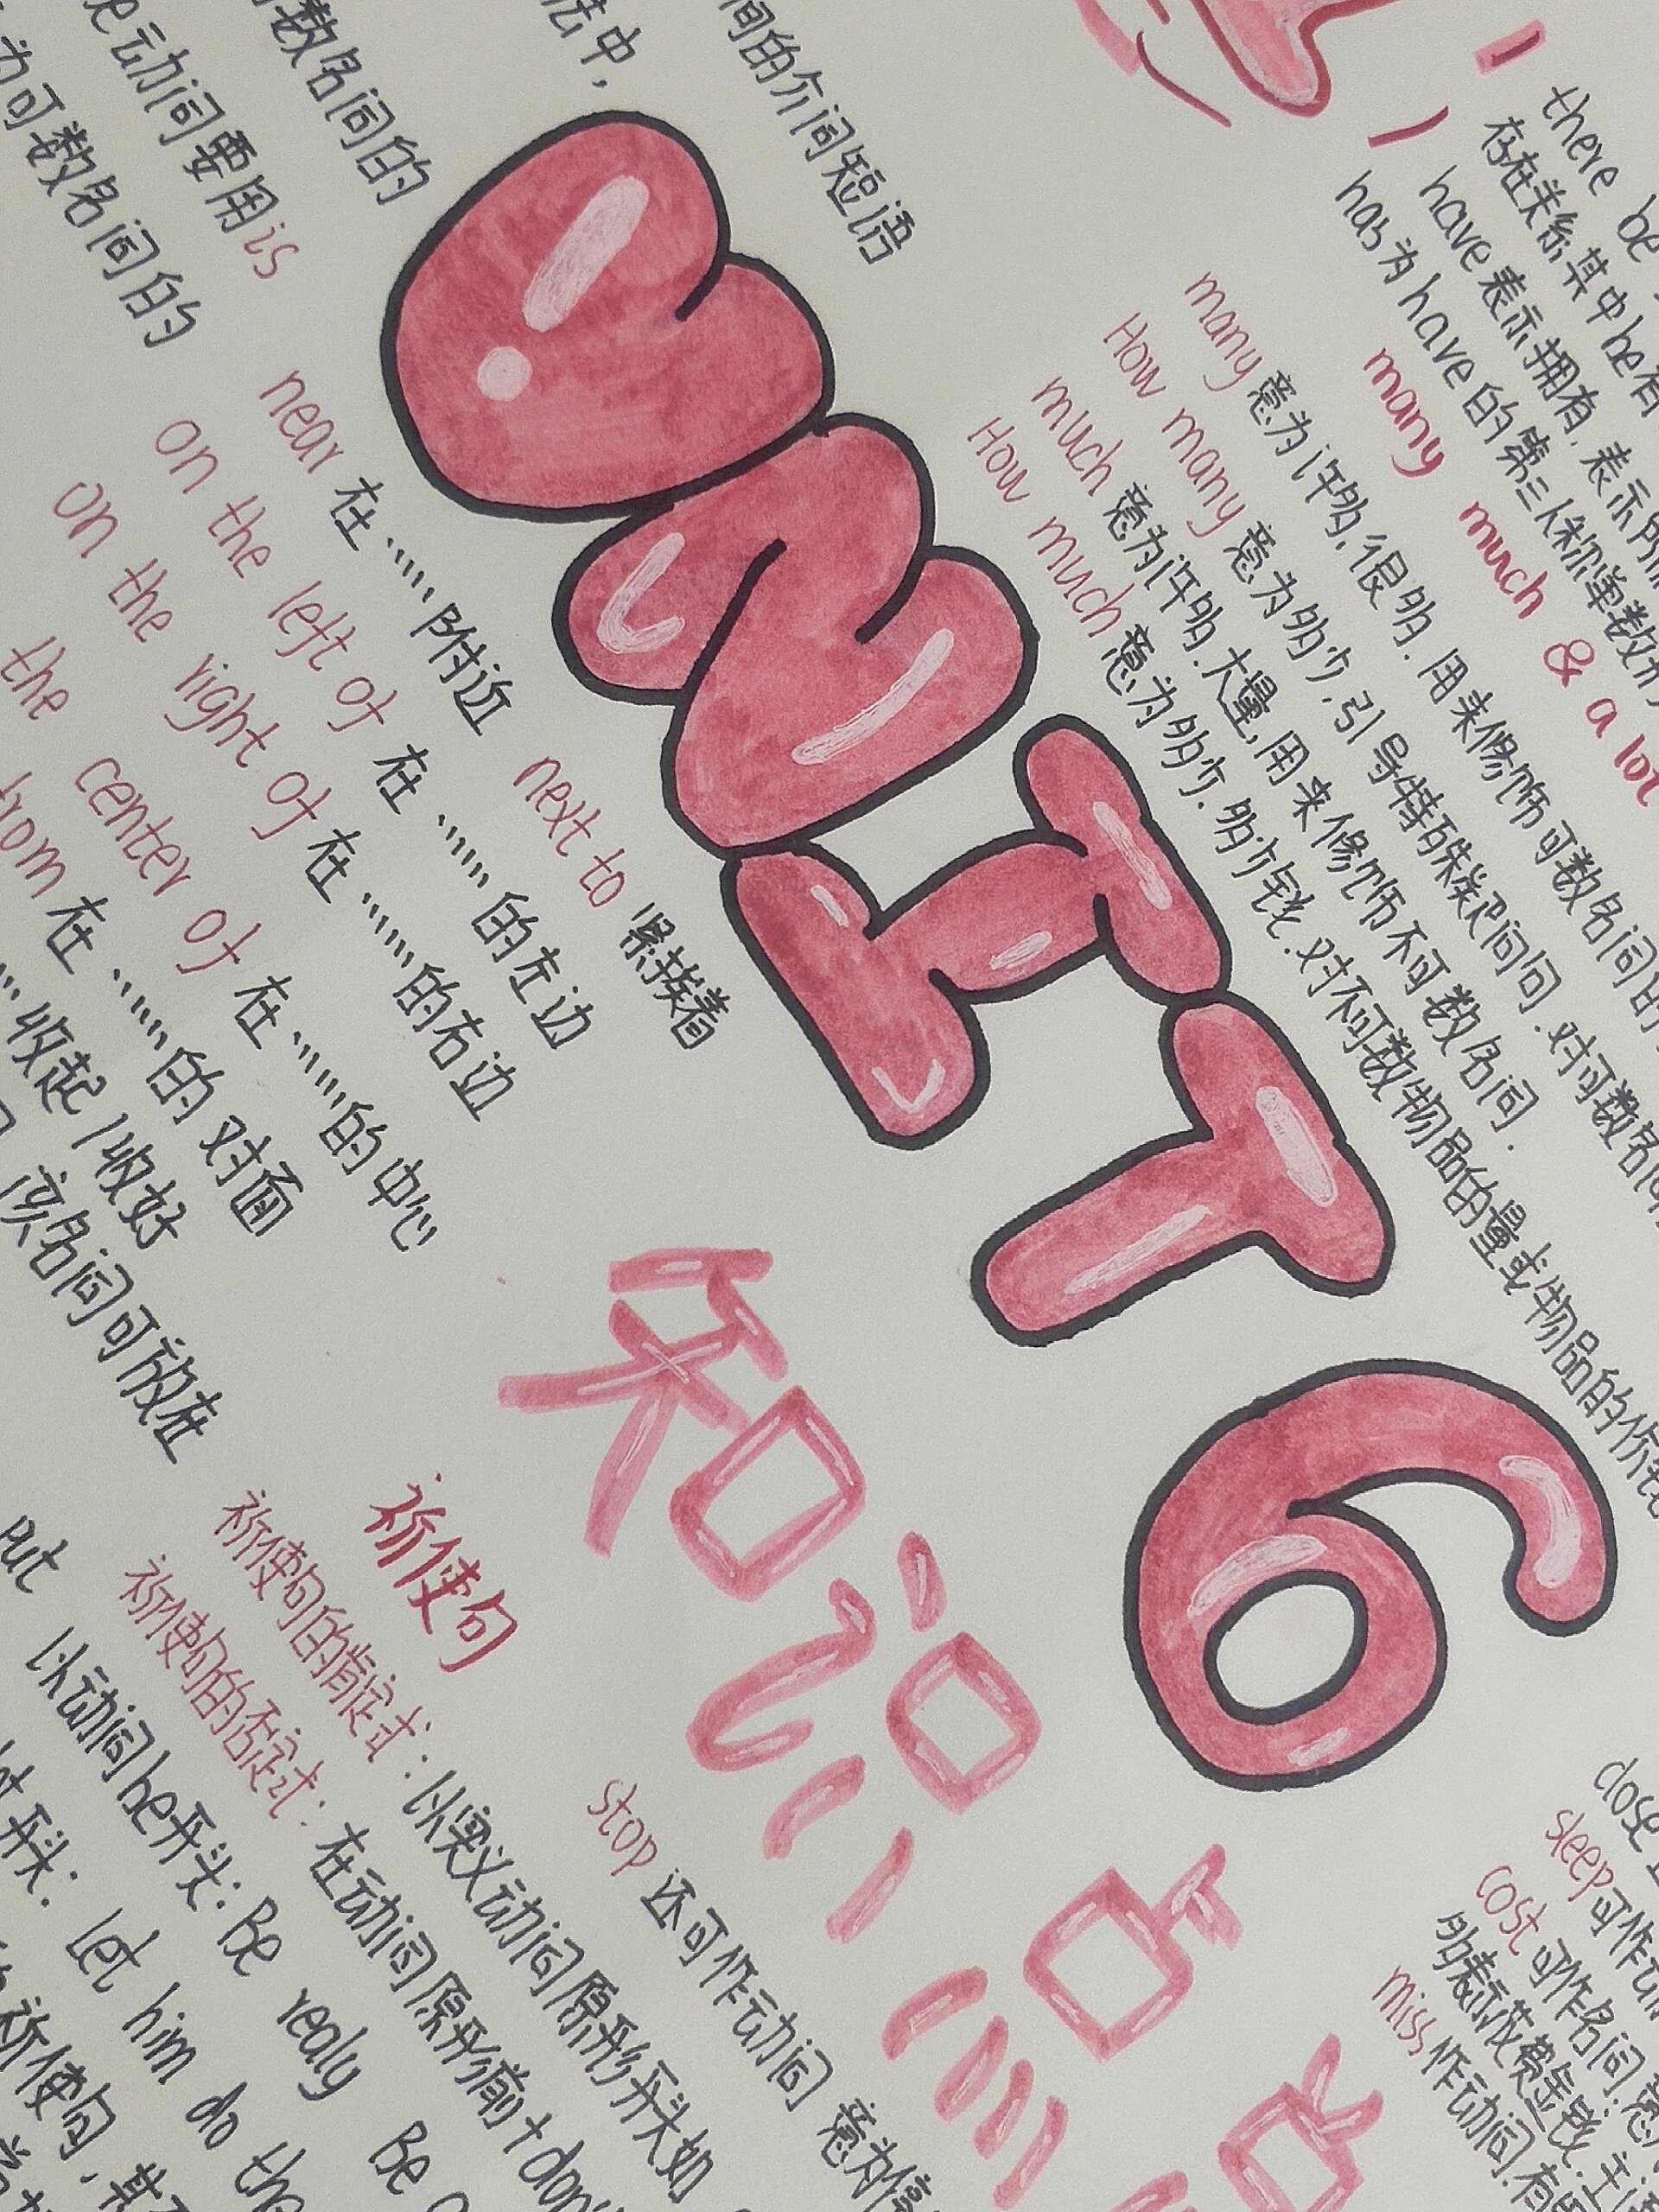 间的介词短语
法中,
数名词的
动词要用is
为可数名词的
UNIT 6
知识点
there be
存在关系,其中be有
have 表示拥有,表示所
has为have的第三人称单数形
many much & a lot
many 意为许多,很多.用来修饰可数名词的
How many 意为多少,引导特殊疑问句.对可数名词
much 意为许多.大量,用来修饰不可数名词.
How much 意为多少.多少钱.对不可数物品的量或物品的价钱
near 在……附近 next to 紧挨着
on the left of 在……的左边
on the right of 在……的右边
the center of 在……的中心
from 在……的对面
…收起/收好
该名词可放在
put
祈使句
祈使句的肯定式:以实义动词原形开头如
祈使句的否定式:在动词原形前+don't
以动词be开头:Be realy Be
开头:let him do the
祈使句,其
stop 还可作动词 意为停
close
sleep可作动
cost可作名词.意
多表示花费金钱.主
miss作动词.有